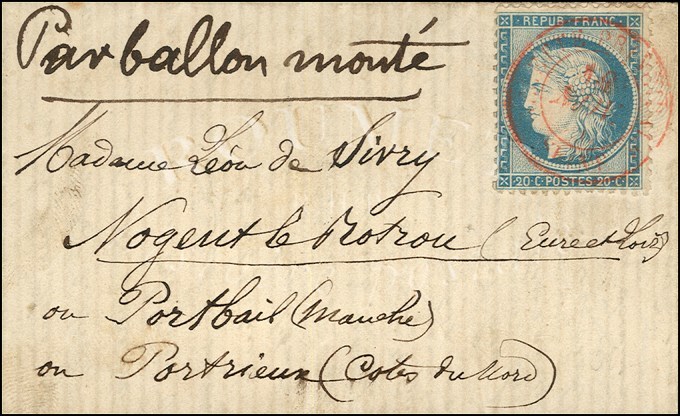 Par ballon monté
REPUB·FRANC·
20·C·POSTES·20·C·
Madame Léon de Sivry
Nogent le Rotrou (Eure et Loir)
ou Portbail (Manche)
ou Portrieux (Cotes du Nord)